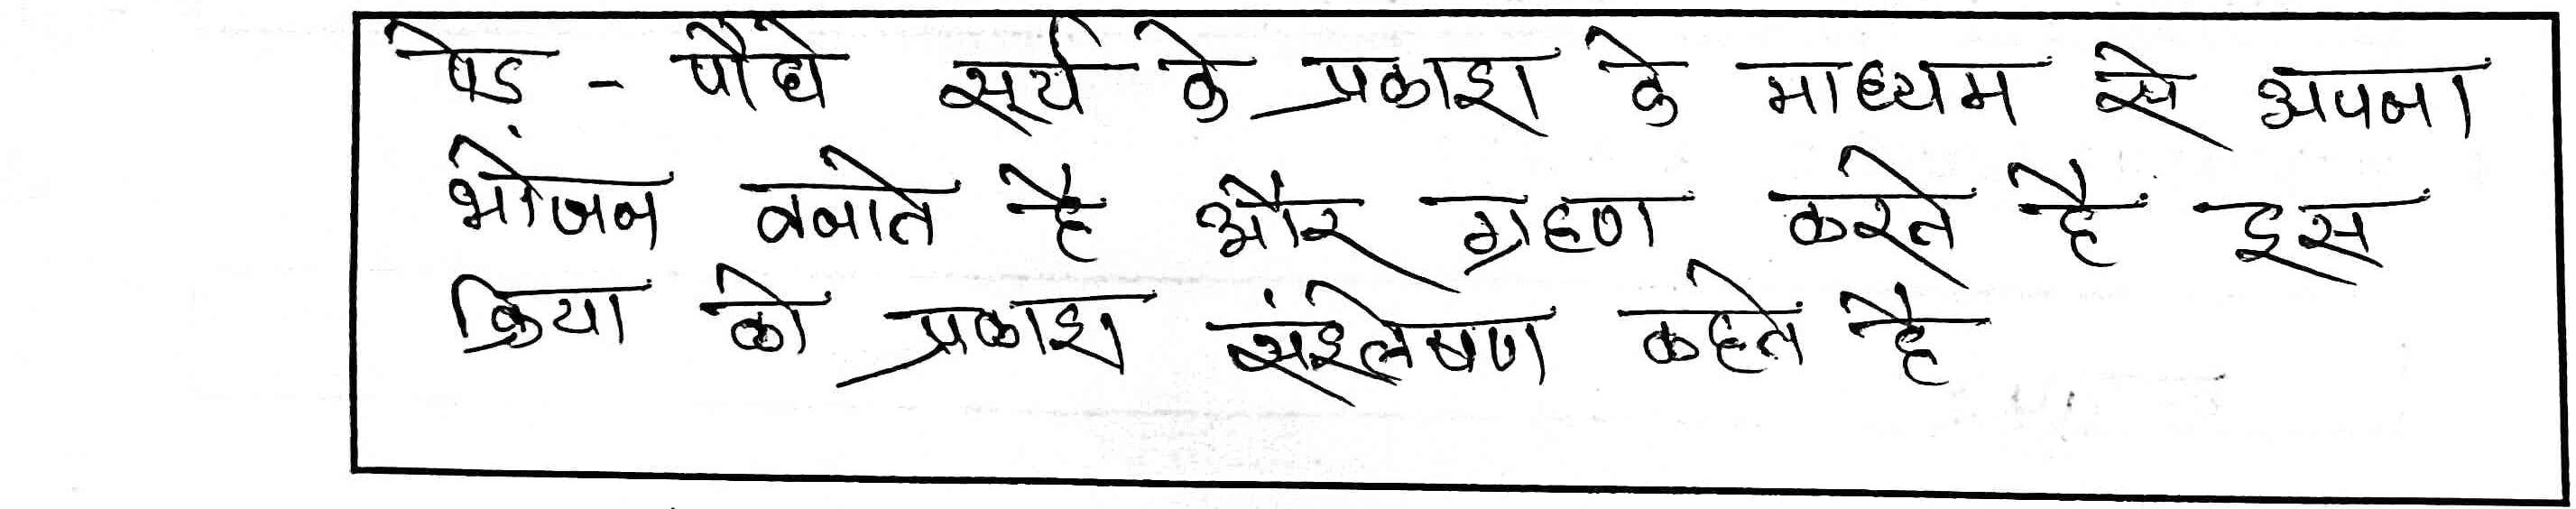 पेड़ - पौधे सूर्य के प्रकाश के माध्यम से अपना
भोजन बनाते है और ग्रहण करते है इस
क्रिया को प्रकाश संश्लेषण कहते है